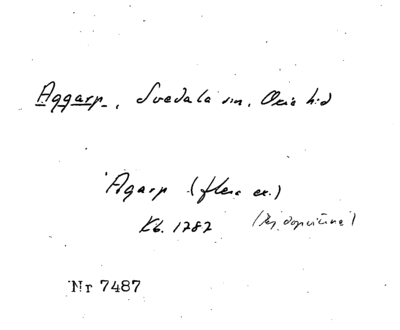 Aggarp, Svedala sn, Oxie hd
Agarp (flera ex.)
Kb. 1787
Nr 7487